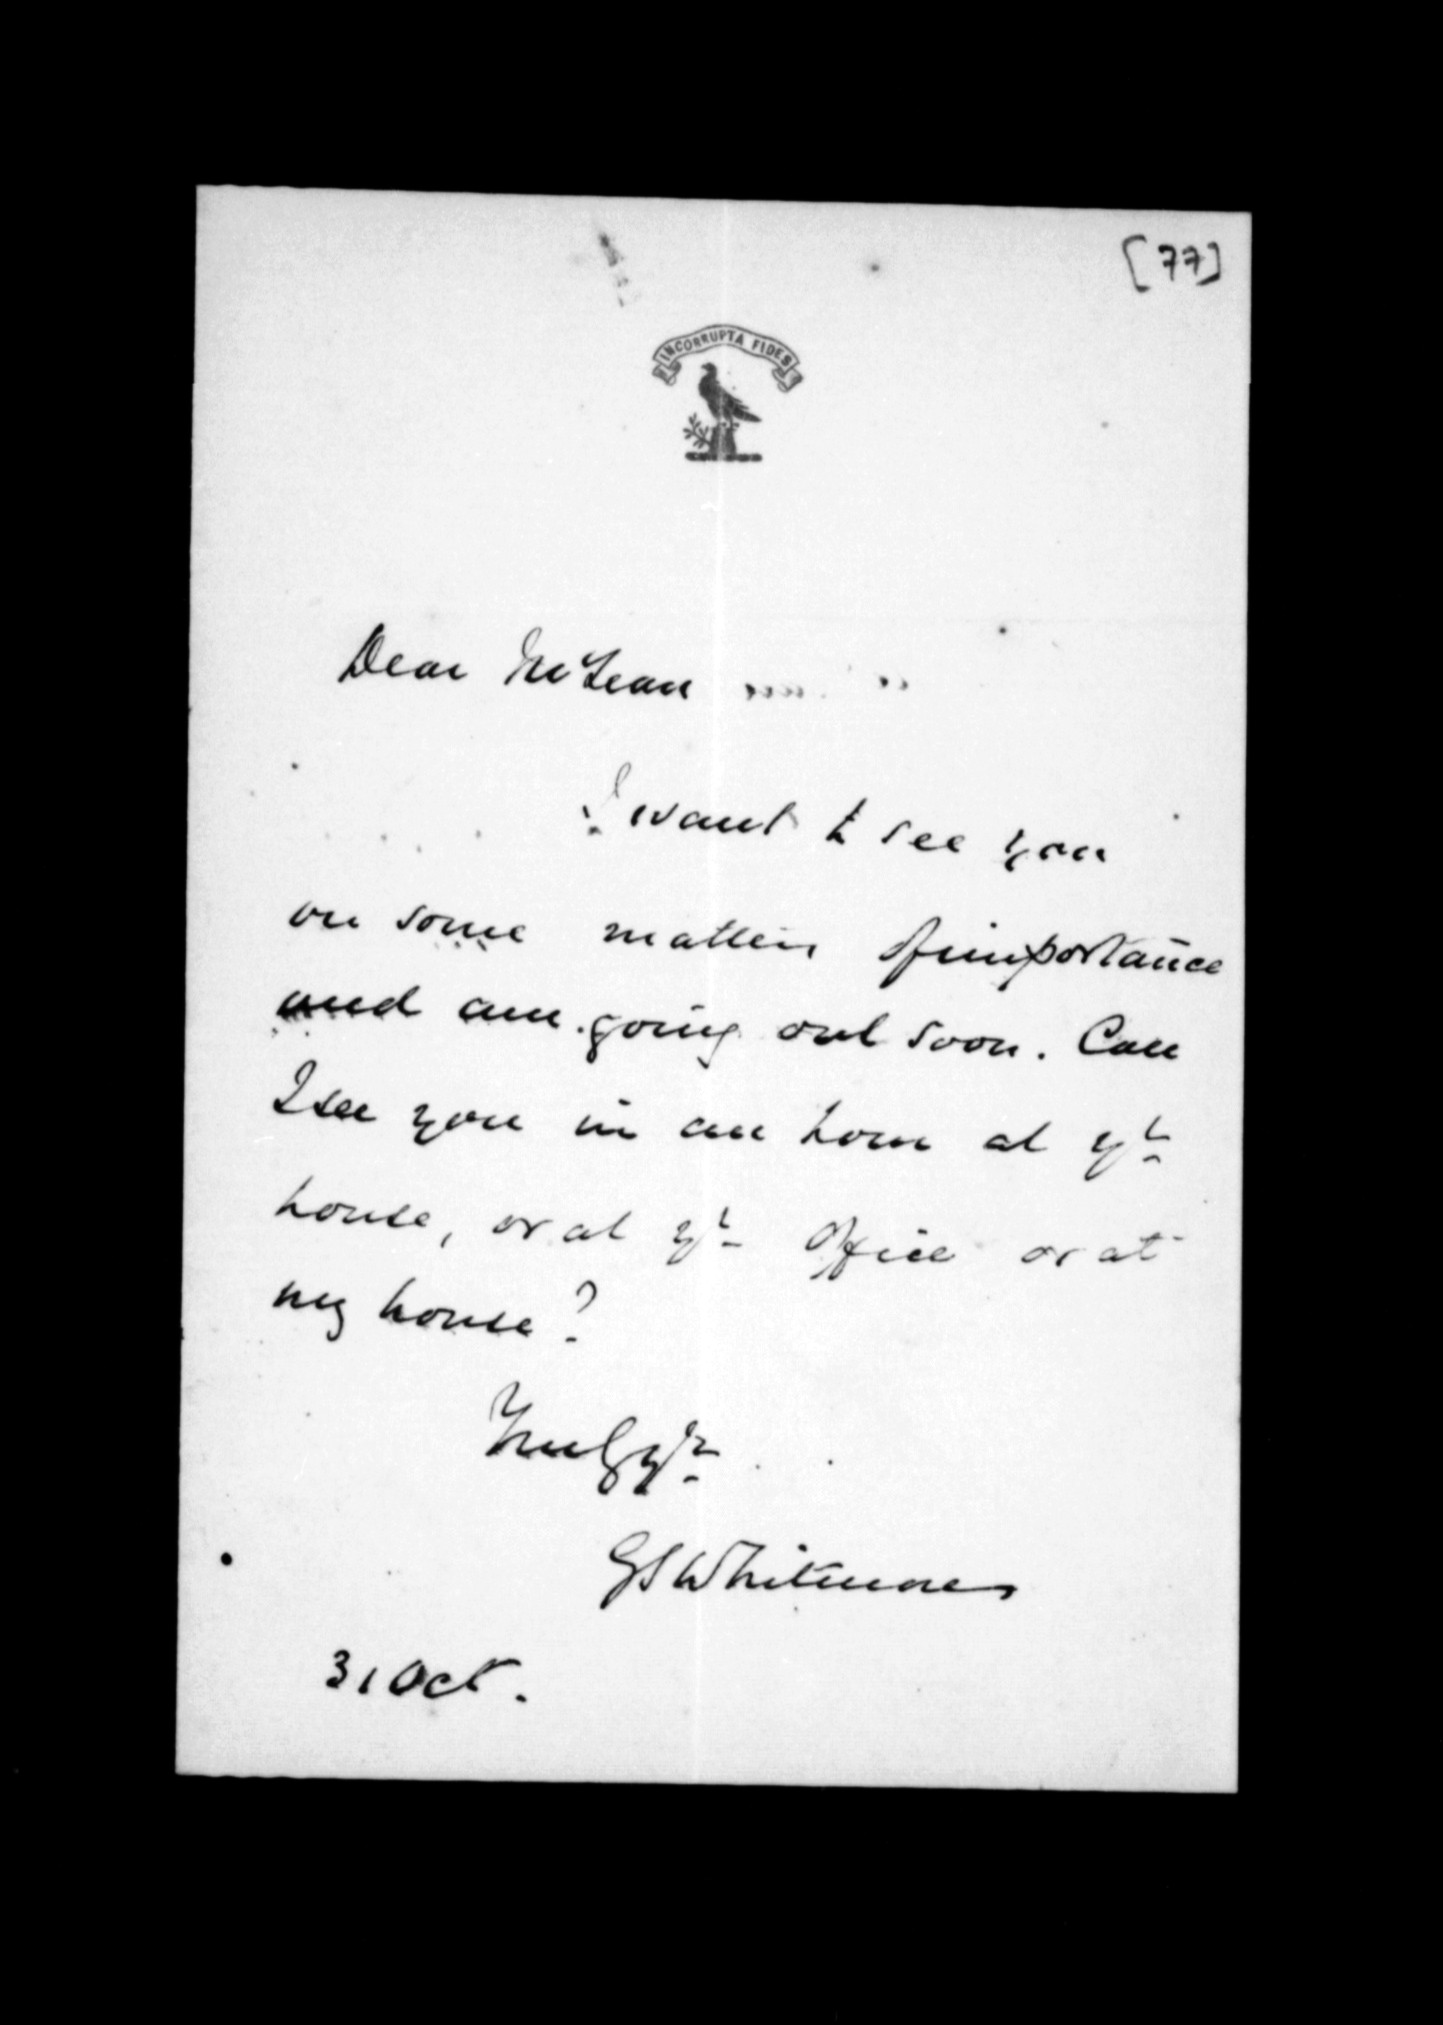 [77]
INCORRUPTA FIDES
Dear McLean
I want to see you
on some matters of importance
and am going out soon. Can
I see you in an hour at yr
house, or at yr office or at
my house?
Truly yrs
GSWhitmore
31 Oct.